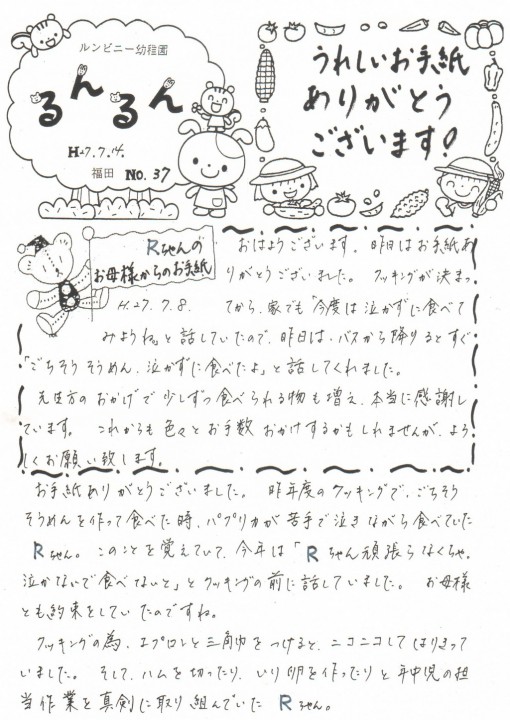 ルンビニー幼稚園
るんるん
H27.7.14.
福田 No.37
うれしいお手紙
ありがとう
ございます!
Rちゃんの
お母様からのお手紙
H.27.7.8.
おはようございます。昨日はお手紙あ
りがとうございました。クッキングが決まっ
てから、家でも「今度は泣かずに食べて
みようね」と話していたので、昨日は、バスから降りるとすぐ
「ごちそうそうめん、泣かずに食べたよ」と話してくれました。
先生方のおかげで少しずつ食べられる物も増え、本当に感謝し
ています。これからも色々とお手数おかけするかもしれませんが、よろ
しくお願い致します。
お手紙ありがとうございました。昨年度のクッキングで、ごちそう
そうめんを作って食べた時、パプリカが苦手で泣きながら食べていた
Rちゃん。このことを覚えていて、今年は「Rちゃん頑張らなくちゃ。
泣かないで食べないと」とクッキングの前に話していました。お母様
とも約束をしていたのですね。
クッキングの為、エプロンと三角巾をつけると、ニコニコしてはりきって
いました。そして、ハムを切ったり、いり卵を作ったりと年中児の担
当作業を真剣に取り組んでいたRちゃん。